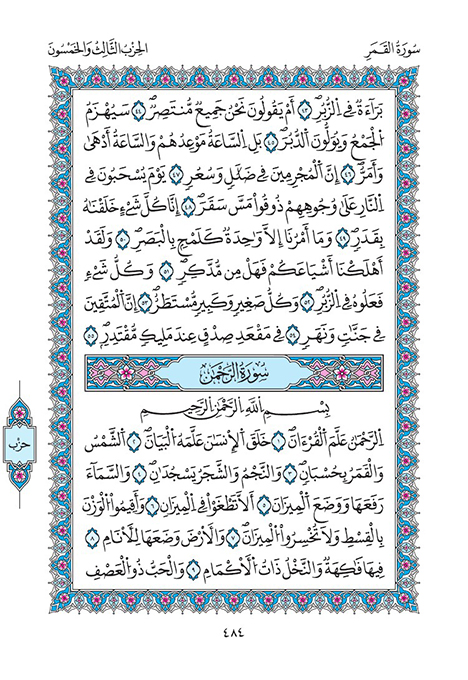 سُورَةُ القَمَرِ
الحِزْبُ الثَّالِثُ وَالخَمْسُونَ
بَرَآءَةٌ فِي الزُّبُرِ ٤٣ أَمْ يَقُولُونَ نَحْنُ جَمِيعٌ مُّنتَصِرٌ ٤٤ سَيُهْزَمُ
الْجَمْعُ وَيُوَلُّونَ الدُّبُرَ ٤٥ بَلِ السَّاعَةُ مَوْعِدُهُمْ وَالسَّاعَةُ أَدْهَىٰ
وَأَمَرُّ ٤٦ إِنَّ الْمُجْرِمِينَ فِي ضَلَٰلٍ وَسُعُرٍ ٤٧ يَوْمَ يُسْحَبُونَ فِي
النَّارِ عَلَىٰ وُجُوهِهِمْ ذُوقُوا مَسَّ سَقَرَ ٤٨ إِنَّا كُلَّ شَيْءٍ خَلَقْنَٰهُ
بِقَدَرٍ ٤٩ وَمَا أَمْرُنَا إِلَّا وَٰحِدَةٌ كَلَمْحٍ بِالْبَصَرِ ٥٠ وَلَقَدْ
أَهْلَكْنَا أَشْيَاعَكُمْ فَهَلْ مِن مُّدَّكِرٍ ٥١ وَكُلُّ شَيْءٍ
فَعَلُوهُ فِي الزُّبُرِ ٥٢ وَكُلُّ صَغِيرٍ وَكَبِيرٍ مُّسْتَطَرٌ ٥٣ إِنَّ الْمُتَّقِينَ
فِي جَنَّٰتٍ وَنَهَرٍ ٥٤ فِي مَقْعَدِ صِدْقٍ عِندَ مَلِيكٍ مُّقْتَدِرٍ ٥٥
سُورَةُ الرَّحْمَٰن
بِسْمِ اللَّهِ الرَّحْمَٰنِ الرَّحِيمِ
الرَّحْمَٰنُ عَلَّمَ الْقُرْءَانَ ١ خَلَقَ الْإِنسَٰنَ عَلَّمَهُ الْبَيَانَ ٢ الشَّمْسُ
وَالْقَمَرُ بِحُسْبَانٍ ٣ وَالنَّجْمُ وَالشَّجَرُ يَسْجُدَٰنِ ٤ وَالسَّمَآءَ
رَفَعَهَا وَوَضَعَ الْمِيزَانَ ٥ أَلَّا تَطْغَوْا فِي الْمِيزَانِ ٦ وَأَقِيمُوا الْوَزْنَ
بِالْقِسْطِ وَلَا تُخْسِرُوا الْمِيزَانَ ٧ وَالْأَرْضَ وَضَعَهَا لِلْأَنَامِ ٨
فِيهَا فَٰكِهَةٌ وَالنَّخْلُ ذَاتُ الْأَكْمَامِ ٩ وَالْحَبُّ ذُو الْعَصْفِ
حِزْب
٤٨٤